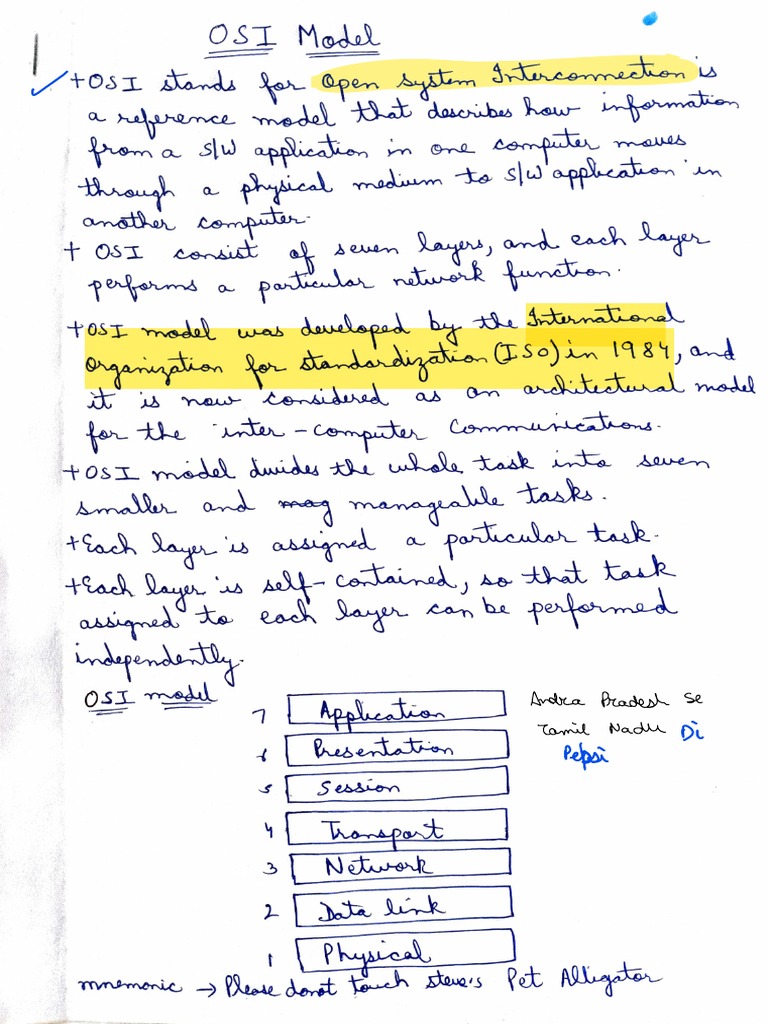 OSI Model
+ OSI stands for Open System Interconnection is
a reference model that describes how information
from a S/W application in one computer moves
through a physical medium to S/W application in
another computer.
+ OSI consist of seven layers, and each layer
performs a particular network function.
+ OSI model was developed by the International
Organization for standardization (ISO) in 1984, and
it is now considered as an architectural model
for the inter-computer communications.
+ OSI model divides the whole task into seven
smaller and mag manageable tasks.
+ Each layer is assigned a particular task.
+ Each layer is self-contained, so that task
assigned to each layer can be performed
independently.
OSI model
7 Application Andra Pradesh Se
6 Presentation Tamil Nadu Di
Pepsi
5 Session
4 Transport
3 Network
2 Data link
1 Physical
mnemonic → Please donot touch steve's Pet Alligator